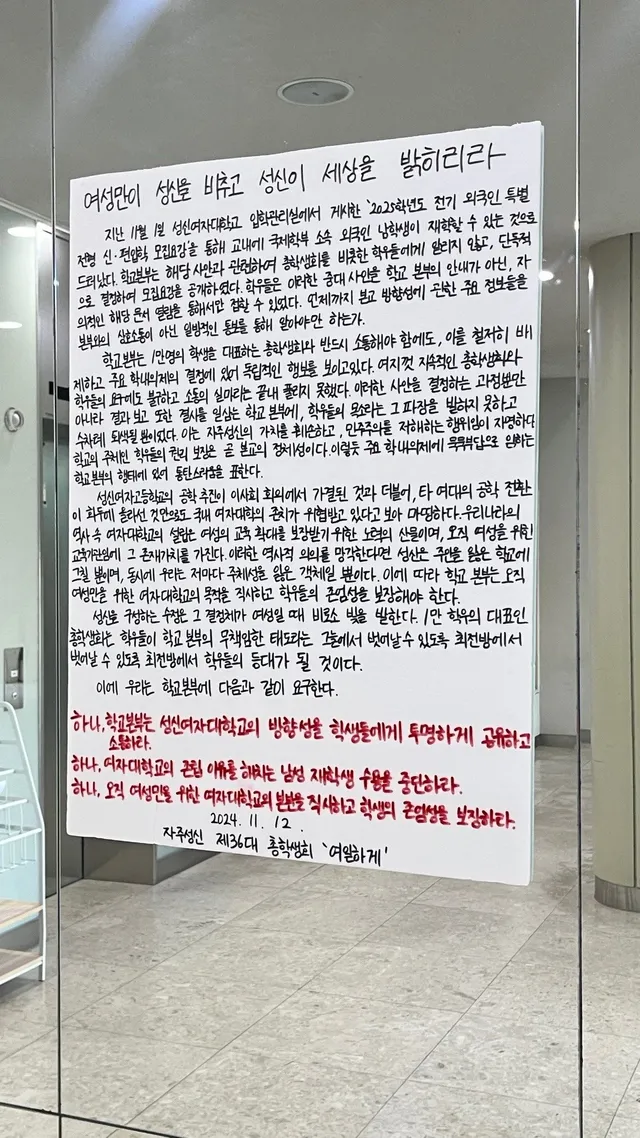 여성만이 성신을 비추고 성신이 세상을 밝히리라
지난 11월 1일 성신여자대학교 입학관리실에서 게시한 '2025학년도 전기 외국인 특별
전형 신·편입학 모집요강'을 통해 교내에 국제학부 소속 외국인 남학생이 재학할 수 있는 것으로
드러났다. 학교본부는 해당 사안과 관련하여 총학생회를 비롯한 학우들에게 알리지 않고, 단독적
으로 결정하여 모집요강을 공개하였다. 학우들은 이러한 중대 사안을 학교 본부의 안내가 아닌, 자
의적인 해당 문서 열람을 통해서만 접할 수 있었다. 언제까지 본교 방향성에 관한 주요 정보들을
본부와의 상호소통이 아닌 일방적인 통보를 통해 알아야만 하는가.
학교본부는 1만명의 학생을 대표하는 총학생회와 반드시 소통해야 함에도, 이를 철저히 배
제하고 주요 학내의제의 결정에 있어 독립적인 행보를 보이고있다. 여지껏 지속적인 총학생회와
학우들의 요구에도 불구하고 소통의 실마리는 끝내 풀리지 못했다. 이러한 사안을 결정하는 과정뿐만
아니라 결과 보고 또한 결사를 일삼는 학교 본부에, 학우들의 목소리는 그 파장을 발하지 못하고
수차례 퇴색될 뿐이었다. 이는 자주성신의 가치를 훼손하고, 민주주의를 저해하는 행위임이 자명하다
학교의 주체인 학우들의 권리 보장은 곧 본교의 정체성이다. 이렇듯 주요 학내의제에 묵묵부답으로 임하는
학교본부의 행태에 있어 통탄스러움을 표한다.
성신여자고등학교의 공학 추진이 이사회 회의에서 가결된 것과 더불어, 타 여대의 공학 전환
이 화두에 올라선 것만으로도 국내 여자대학의 존치가 위협받고 있다고 보아 마땅하다. 우리나라의
역사 속 여자대학교의 설립은 여성의 교육 확대를 보장받기 위한 노력의 산물이며, 오직 여성을 위한
교육기관임에 그 존재가치를 가진다. 이러한 역사적 의의를 망각한다면 성신은 주인을 잃은 학교에
그칠 뿐이며, 동시에 우리는 저마다 주체성을 잃은 객체일 뿐이다. 이에 따라 학교 본부는 오직
여성만을 위한 여자대학교의 목적을 직시하고 학우들의 존엄성을 보장해야 한다.
성신을 구성하는 수정은 그 결정체가 여성일 때 비로소 빛을 발한다. 1만 학우의 대표인
총학생회는 학우들이 학교 본부의 무책임한 태도라는 그늘에서 벗어날 수 있도록 최전방에서
벗어날 수 있도록 최전방에서 학우들의 등대가 될 것이다.
이에 우리는 학교본부에 다음과 같이 요구한다.
하나, 학교본부는 성신여자대학교의 방향성을 학생들에게 투명하게 공유하고
소통하라.
하나, 여자대학교의 존립 이유를 해치는 남성 재학생 수용을 중단하라.
하나, 오직 여성만을 위한 여자대학교의 본분을 직시하고 학생의 존엄성을 보장하라.
2024. 11. 12.
자주성신 제36대 총학생회 '여일하게'